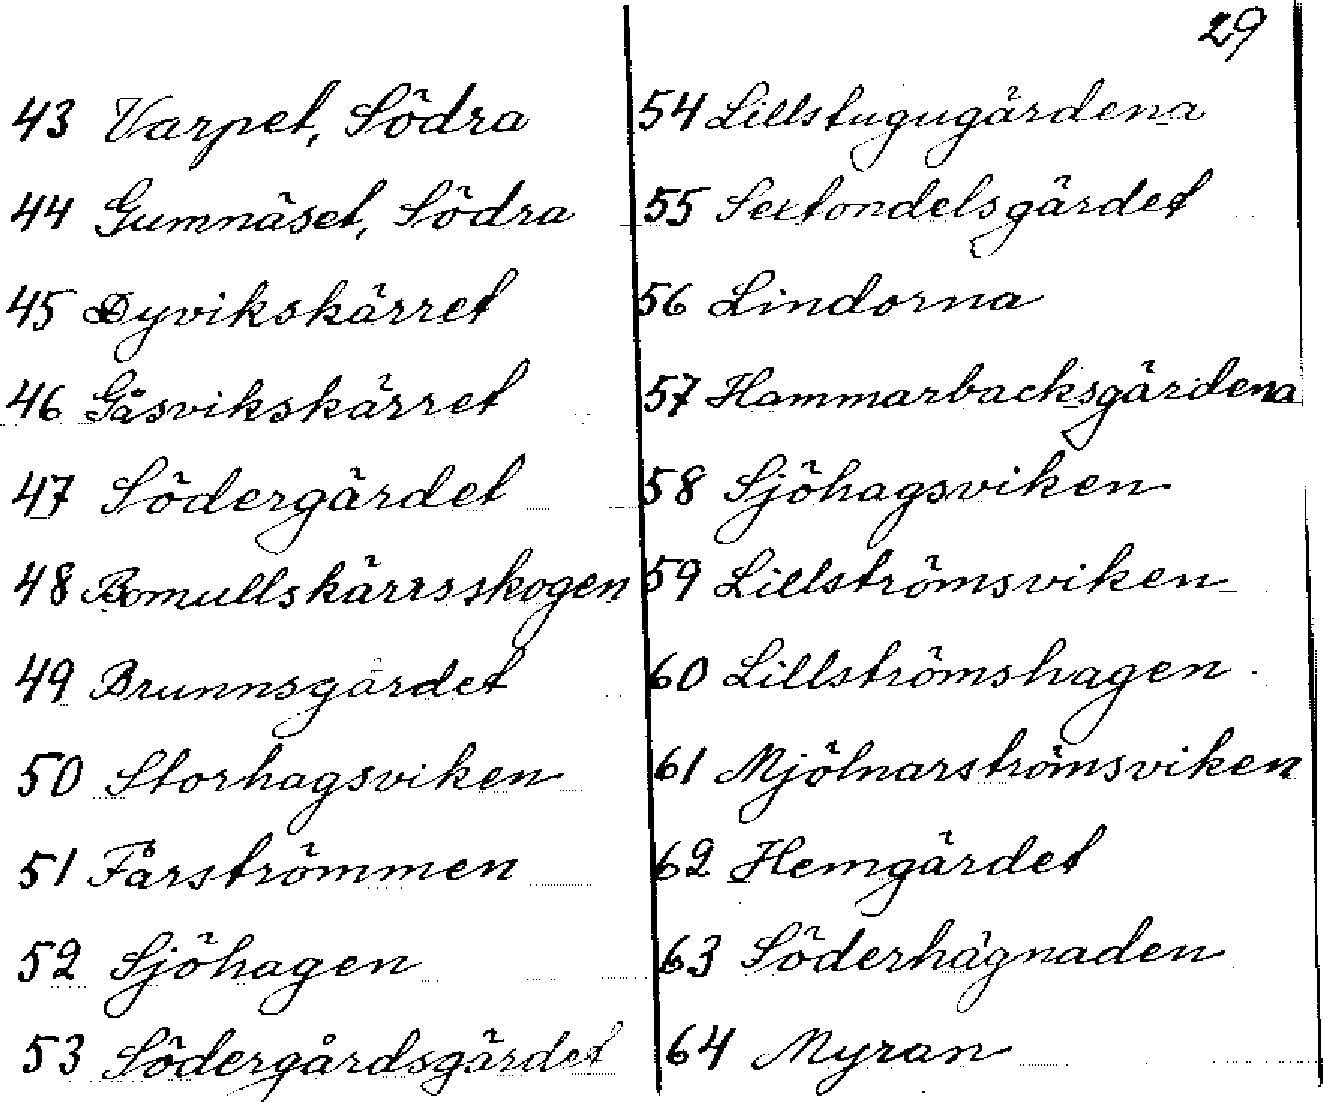 29
43 Varpet, Södra
44 Gumnäset, Södra
45 Dyvikskärret
46 Gåsvikskärret
47 Södergärdet
48 Bomullskärrsskogen
49 Brunnsgärdet
50 Storhagsviken
51 Fårströmmen
52 Sjöhagen
53 Södergårdsgärdet
54 Lillstugugärdena
55 Sextondelsgärdet
56 Lindorna
57 Hammarbacksgärdena
58 Sjöhagsviken
59 Lillströmsviken
60 Lillströmshagen
61 Mjölnarströmsviken
62 Hemgärdet
63 Söderhägnaden
64 Myran